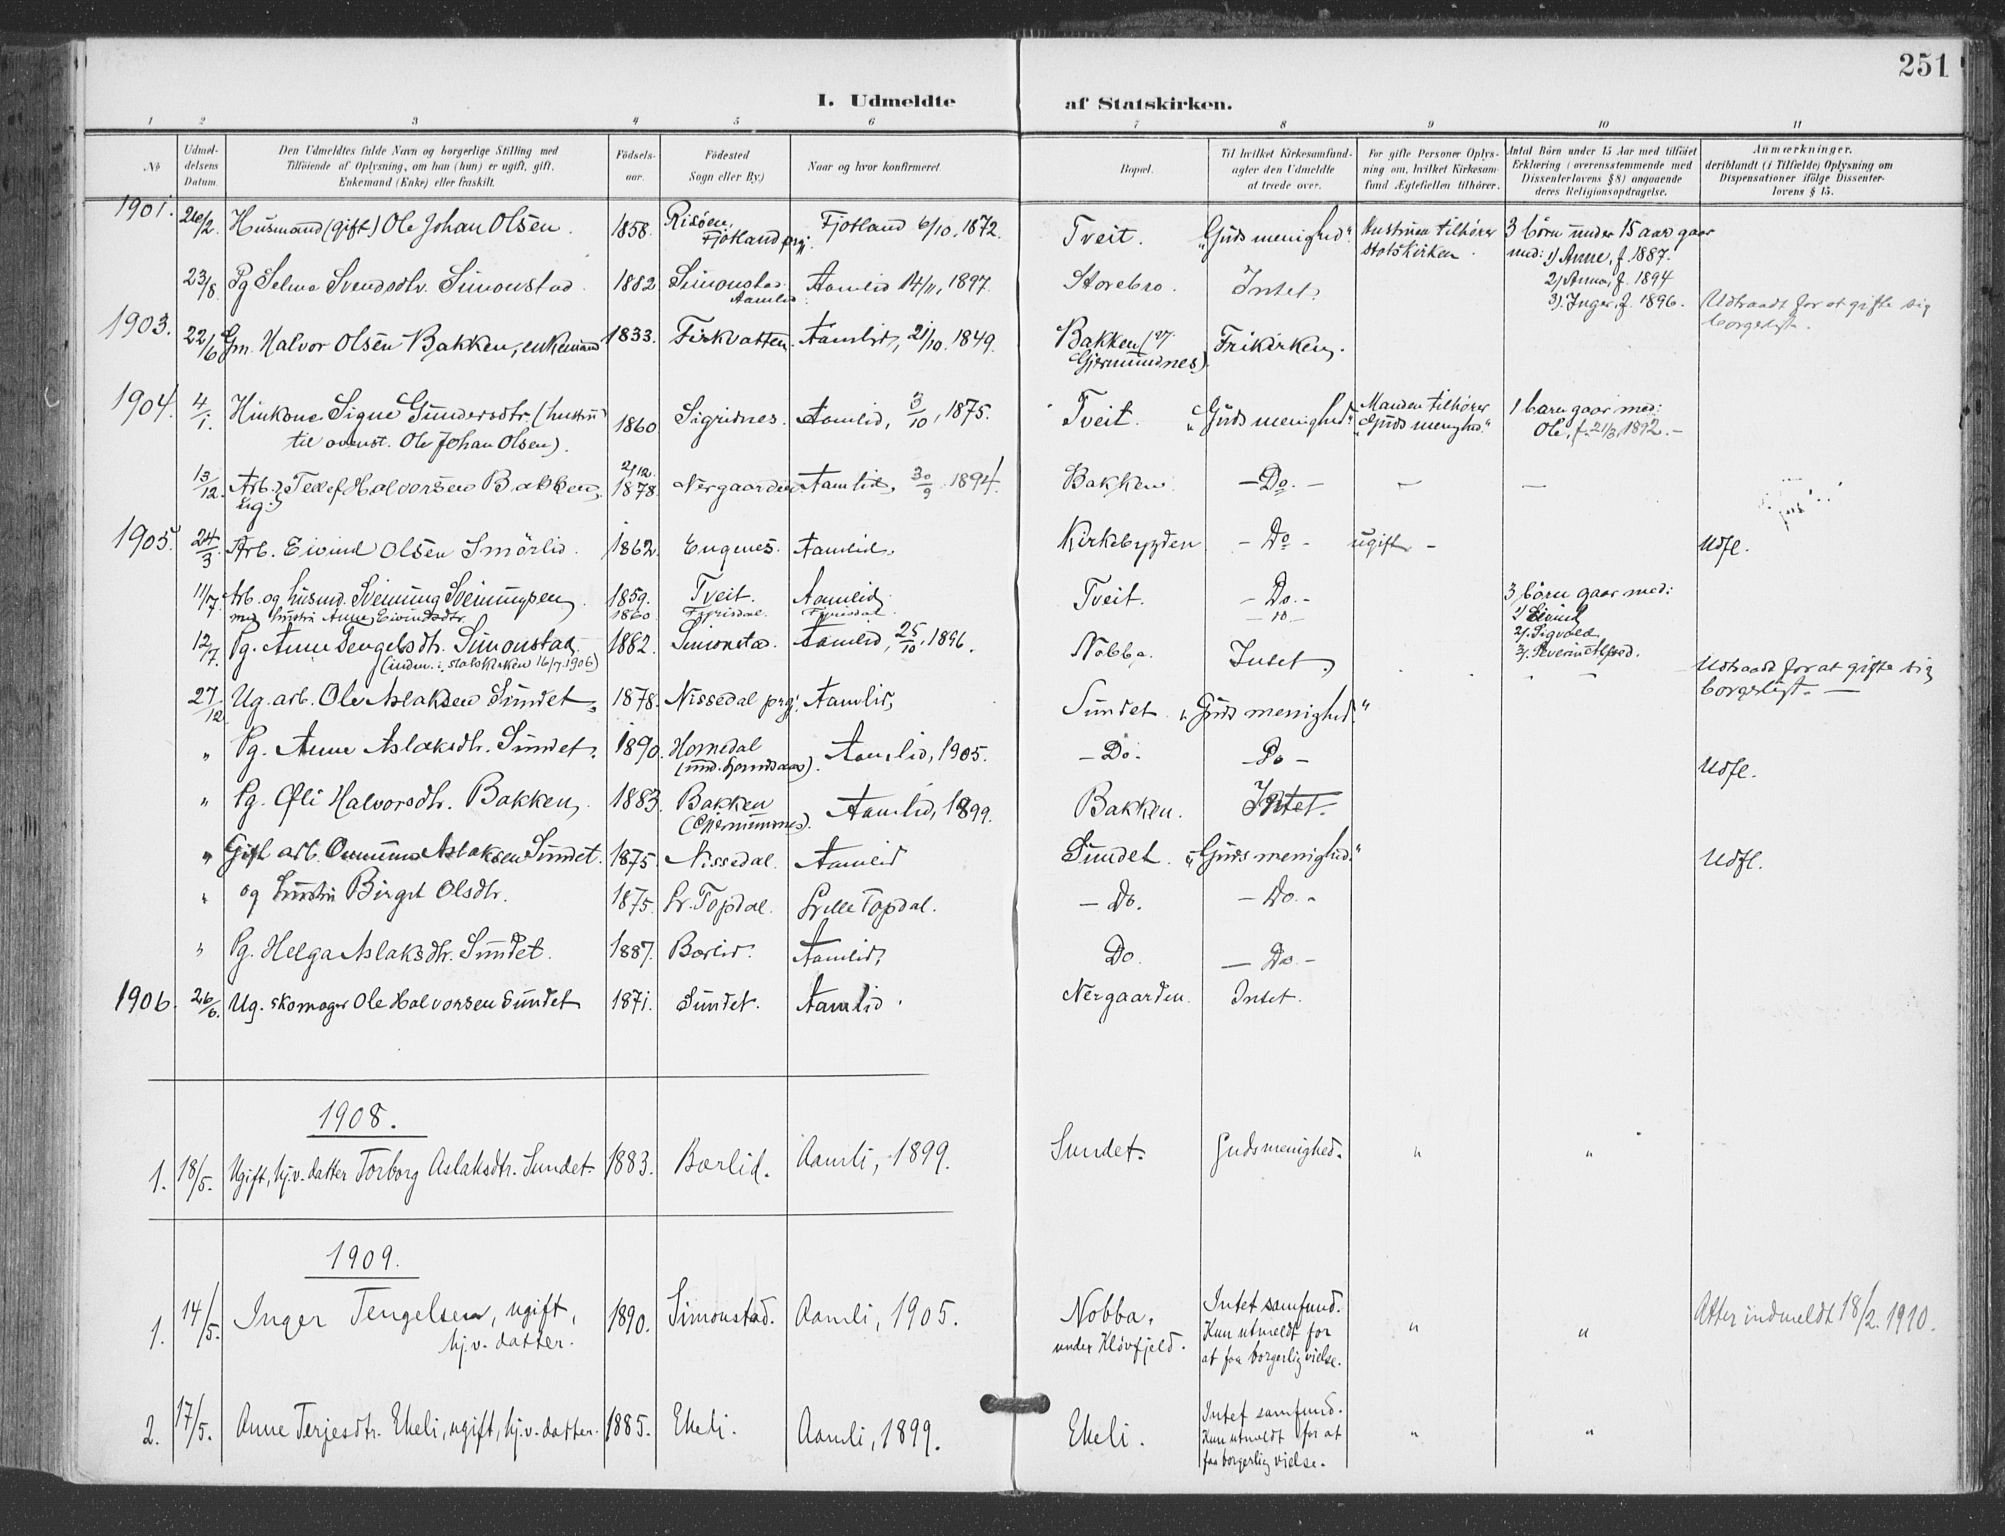 251
I. Udmeldte af Statskirken.
1 2 3 4 5 6 7 8 9 10 11
No
Udmeldelsens Datum.
Den Udmeldtes fulde Navn og borgerlige Stilling med
Tilföiende af Oplysning, om han (hun) er ugift, gift,
Enkemand (Enke) eller fraskilt.
Födselsaar.
Födested
Sogn eller By.)
Naar og hvor konfirmeret
Bopæl.
Til hvilket Kirkesamfund
agter den Udmeldte
at træde over.
For gifte Personer Oplysning om, hvilket Kirkesamfund Ægtefællen tilhörer.
Antal Börn under 15 Aar med tilföiet
Erklæring (overensstemmende med
Dissenterlovens § 8) angaaende
deres Religionsopdragelse.
Anmærkninger,
deriblandt (i Tilfælde) Oplysning om
Dispensationer ifölge Dissenterlovens § 15.
1901. 20/2. Husmand (gift) Ole Johan Olsen. 1858. Risöen, Fjotland prgj. Fjotland 6/10, 1872. Tveit. "Guds menighed". Hustruen tilhörer statskirken. 3 börn under 15 aar gaar
med: 1) Anne, f. 1887.
2) Anna, f. 1894
3). Inger, f. 1896.
23/8. Pg Selma Svendsdtr. Simonstad 1882 Simonstad Aamlid. Aamlid 14/11, 1897. Storebro. Intet. Udtraadt for at gifte sig borgerligt.
1903. 22/6 Gm. Halvor Olsen Bakken, enkemand 1833. Firkvatten. Aamlid, 21/10. 1849. Bakken (v. Gjermundnes). Frikirken.
1904. 4/1. Huskone Signe Gundersdtr. (hustru
til ovenst. Ole Johan Olsen). 1860 Sigridnes. Aamlid, 3/10, 1875. Tveit. "Guds menighed" Manden tilhörer "Guds menighed." 1 barn gaar med:
Ole, f. 21/3, 1892. —
13/12. Arb. ug. Tellef Halvorsen Bakken. 2/12. 1878. Nergaarden Aamlid, 30/9 1894. Bakken — Do. — — —
1905. 24/3. Arb. Eivind Olsen Smörlid. 1862. Engenes. Aamlid. Kirkebygden — Do — ugift — Udfl.
11/7. Arb. og husmd. Sveinung Sveinungsen 1859. Tveit. Aamlid Tveit. — Do. — 3 börn gaar med:
med hustru Anne Eivindsdtr. 1860 Fyrisdal. Fyrisdal. — Do — 1) Eivind
2). Sigvald
3). Severin Alfred.
12/7. Pg. Anne Tengelsdtr. Simonstad. 1882. Simonstad. Aamlid, 25/10, 1896. Nobba. Intet.
(indm. i statskirken 16/7. 1906) Udtraadt for at gifte sig
borgerligt. —
27/12 Ug. arb. Ole Aslaksen Sundet. 1878. Nissedal prgj. Aamlid, Sundet "Guds menighed."
" Pg. Anne Aslaksdtr. Sundet. 1890. Homedal Aamlid, 1905. — Do. — Do — Udfl.
" Pg. Ofli Halvorsdtr. Bakken. 1883. Bakken (Gjermundnes). Aamlid, 1899. Bakken. Intet.
" Gift arb. Aslaksen Sundet. 1875 Nissedal. Aamlid Sundet. "Guds menighed." Udfl.
" og hustru Birgit Olsdtr. 1875. Lr. Topdal. Lille Topdal. — Do. — Do. —
" Pg. Helga Aslaksdtr. Sundet. 1887. Bærlid. Aamlid, Do. — Do. —
1906. 26/6. Ug. skomager Ole Halvorsen Sundet 1871. Sundet. Aamlid. Nergaarden. Intet.
1908.
1. 18/5. Ugift, hj.v. datter Torborg Aslaksdtr. Sundet. 1883. Bærlid. Aamli, 1899. Sundet. Gudsmenighed. " "
1909.
1. 14/5. Inger Tengelsen, ugift, hj.v. datter. 1890. Simonstad. Aamli, 1905. Nobba. under Klövfjeld. Intet samfund.
Kun utmeldt for
at faa borgerlig vielse. " " Atter indmeldt 18/2. 1910.
2. 17/5. Anne Terjesdtr. Ekeli, ugift, hj.v. datter. 1885. Ekeli. Aamli, 1899. Ekeli. Intet samfund.
Kun utmeldt for at
faa borgerlig vielse. " "